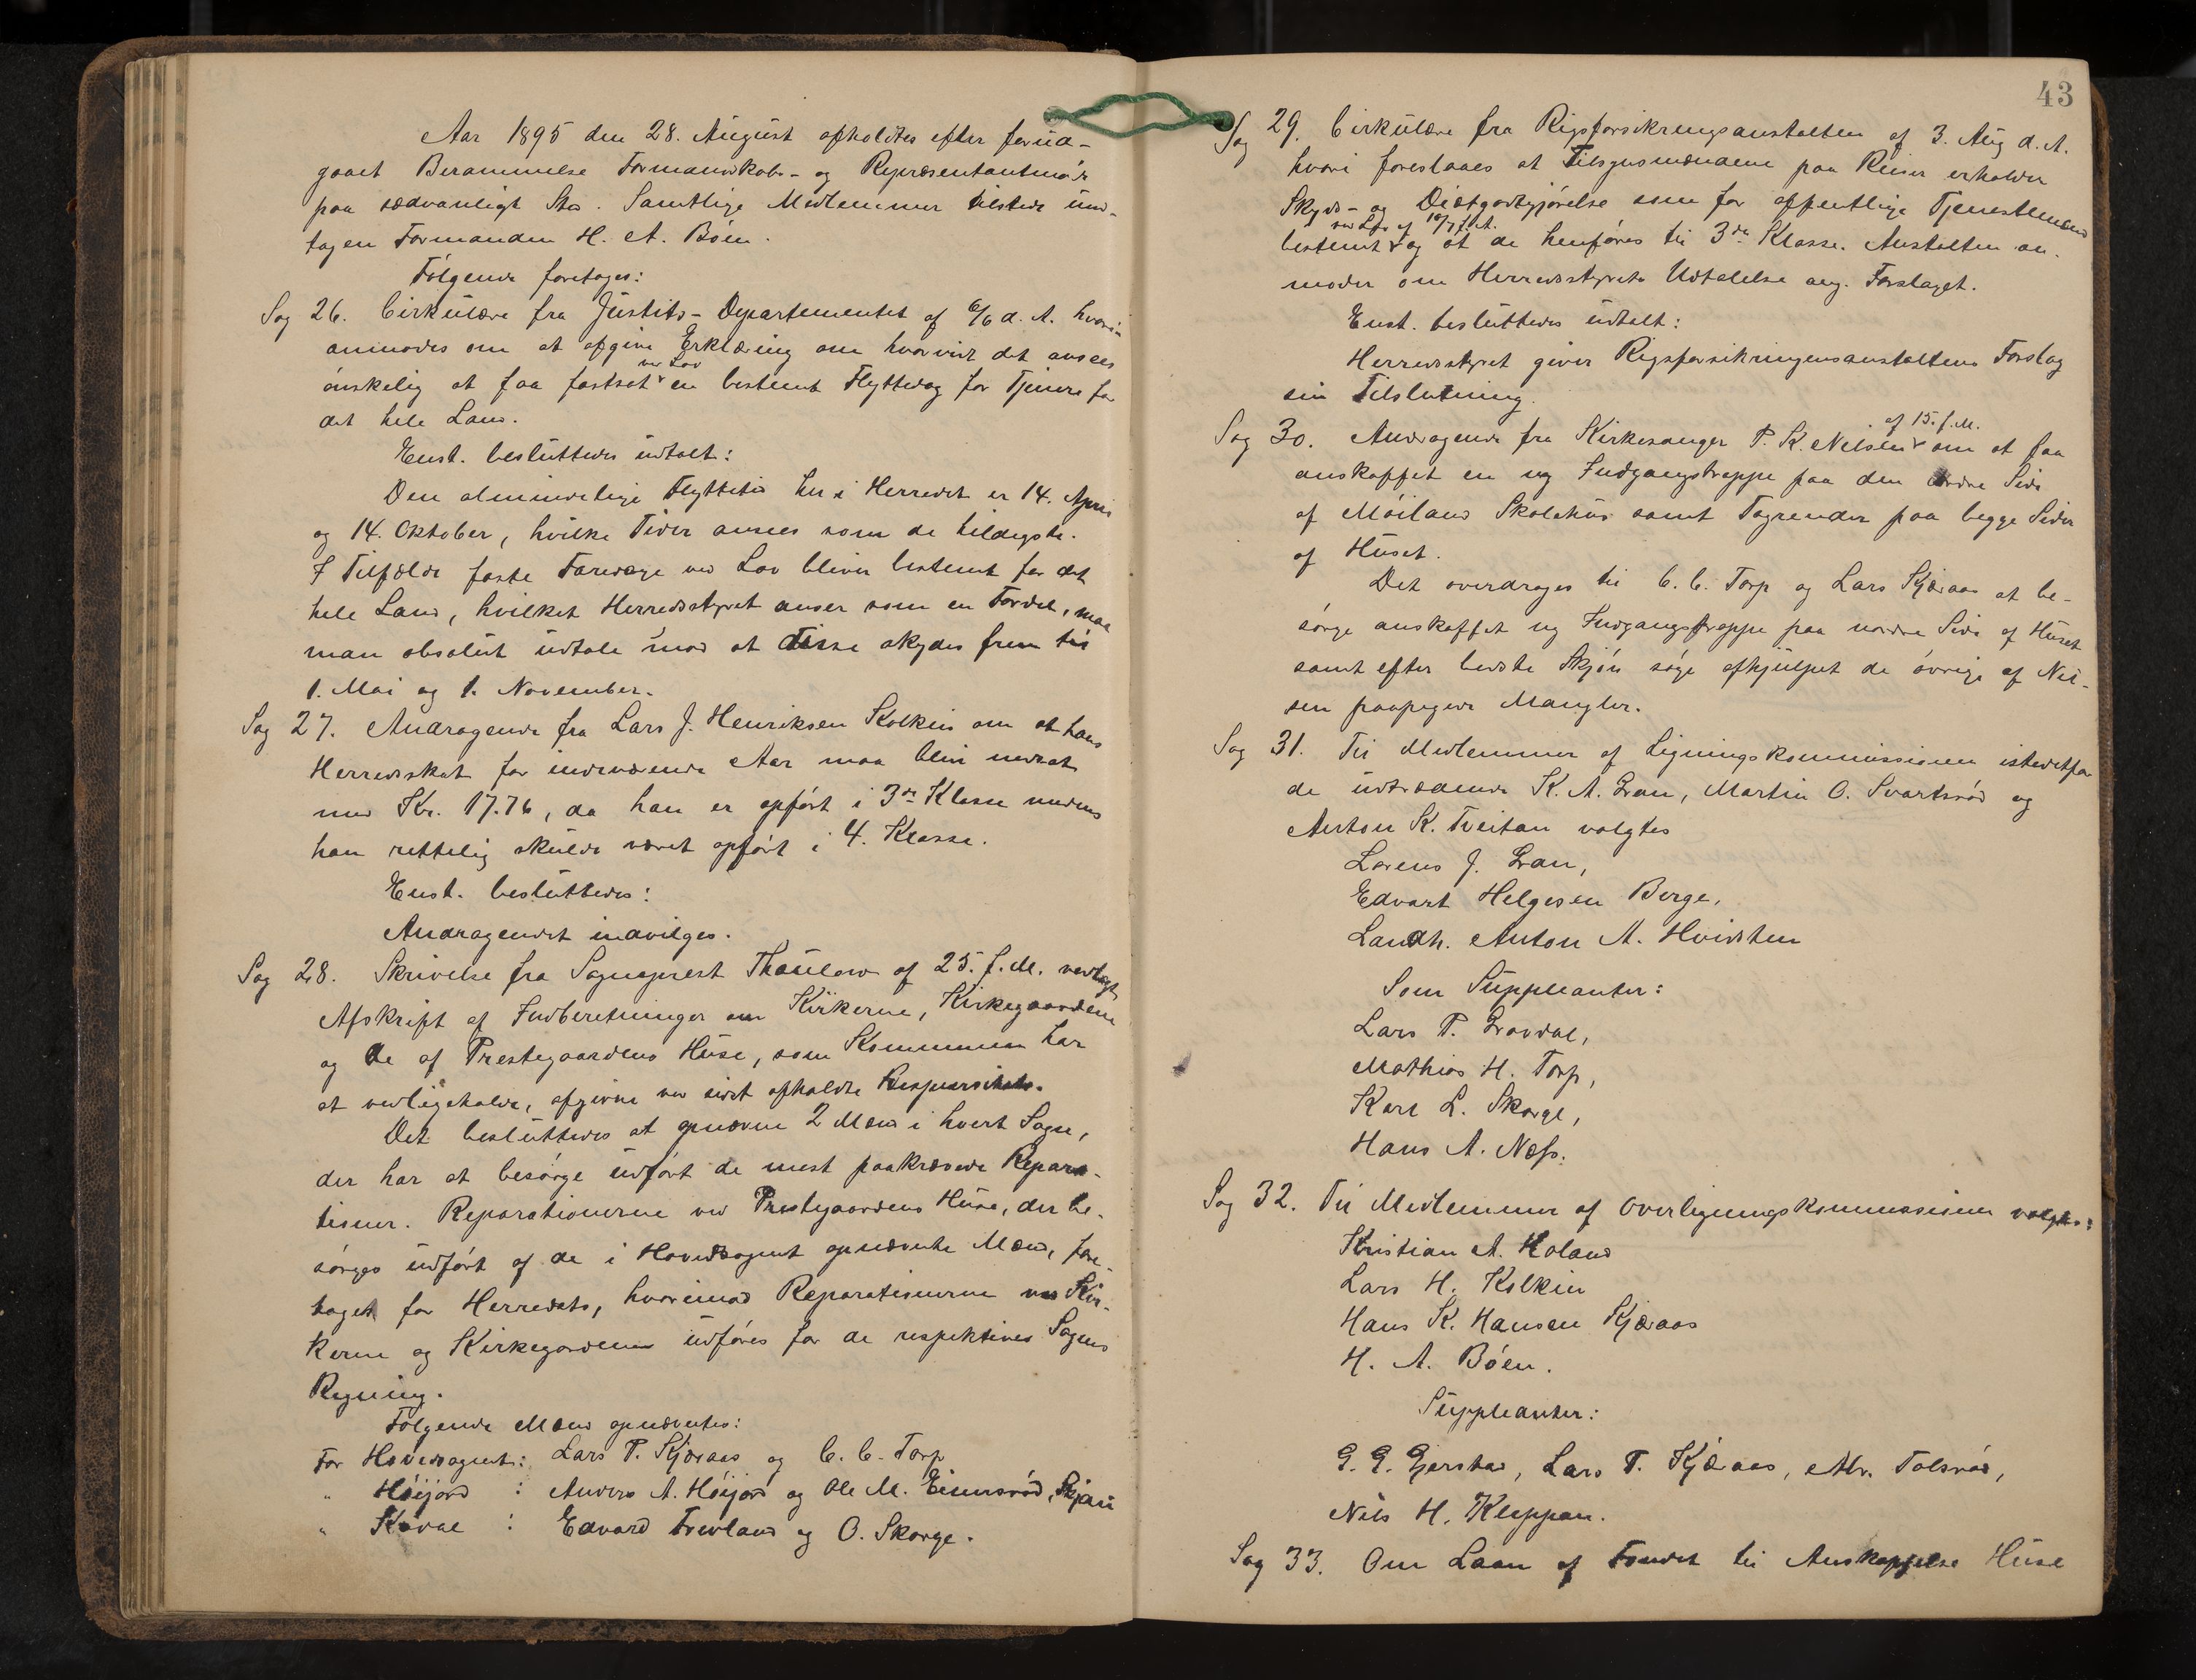 Aar 1895 den 28. August afholdtes efter forud-
gaaet Berammelse Formandskabs- og Repræsentantmøde
paa sædvanligt Sted. Samtlige Medlemmer tilstede und-
tagen Formanden H. A. Bøen.
Følgende foretoges:
Sag 26. Cirkulære fra Justits-Departementet af 6/6 d. A. hvori
anmodes om at afgive Erklæring om hvorvidt det ansees
ved Lov
ønskelig at faa fastsat en bestemt Flyttedag for Tjenere for
det hele Land.
Enst. besluttedes udtalt:
Den almindelige Flyttetid her i Herredet er 14. April
og 14. Oktober, hvilke Tider ansees som de heldigste.
I Tilfælde faste Faredage ved Lov bliver bestemt for det
hele Land, hvilket Herredsstyret anser som en Fordel, maa
man absolut udtale mod at disse skydes frem til
1. Mai og 1. November.
Sag 27. Andragende fra Lars J. Henriksen Kolkin om at hans
Herredsskat for indeværende Aar maa blive nedsat
med Kr. 17.76, da han er opført i 3de Klasse medens
han rettelig skulde været opført i 4. Klasse.
Enst. besluttedes:
Andragendet indvilges.
Sag 28. Skrivelse fra Sogneprest Thaulow af 25. f. M. vedlagt
Afskrift af Indberetninger om Kirkerne, Kirkegaardene
og de af Prestegaardens Huse, som Kommunen har
at vedligeholde, afgivne ved sidst afholdte
Det besluttedes at opnævne 2 Mænd i hvert Sogn,
der har at besørge udført de mest paakrævede Repara-
tioner. Reparationerne ved Prestegaardens Huse, der be-
sørges udført af de i Hovedsognet opnævnte Mænd, fore-
tages for Herredets, hvorimod Reparationerne ved Kir-
kerne og Kirkegaardene udføres for de respektives Sognes
Regning.
Følgende Mænd opnævntes:
For Hovedsognet: Lars P. Kjæraas og C. C. Torp
" Høijord : Anders A. Høijord og Ole M. Skjau
" Kodal : Edvard Trevland og O. Skorge.
43
Sag 29. Cirkulære fra Rigsforsikringsanstalten af 3. Aug d. A.
hvori foreslaaes at Tilsynsmændene paa Reiser erholder
Skyds- og Diætgodtgjørelse som for offentlige Tjenestemænd
ved Lov af
bestemt og at de henføres til 3de Klasse. Anstalten an-
moder om Herredsstyrets Udtalelse ang. Forslaget.
Enst. besluttedes udtalt:
Herredsstyret giver Rigsforsikringsanstaltens Forslag
sin Tilslutning.
af 15. f. M.
Sag 30. Andragende fra Kirkesanger P. K. Nilsen om at faa
anskaffet en ny Indgangstrappe paa den nordre Side
af Møiland Skolehus samt Tagrender paa begge Sider
af Huset.
Det overdroges til C. C. Torp og Lars Kjæraas at be-
sørge anskaffet ny Indgangstrappe paa nordre Side af Huset
samt efter bedste Skjøn søge afhjulpet de øvrige af Nil-
sen paapegede Mangler.
Sag 31. Til Medlemmer af Ligningskommissionen istedetfor
de udtrædende K. A. Gran, Martin O. Svartsrød og
Anton K. Tveitan valgtes
Lorens J. Gran,
Edvart Helgesen Berge,
Landh. Anton A. Hvidsten
Som Suppleanter:
Lars P. Gravdal,
Mathias H. Torp,
Karl L. Skorge,
Hans A. Næss.
Sag 32. Til Medlemmer af Overligningskommissionen valgtes:
Kristian A. Holand
Lars H. Kolkin
Hans K. Hansen Kjæraas
H. A. Bøen.
Suppleanter:
G. G. Gjerstad, Lars P. Kjæraas, Abr. Tolsrød,
Nils H. Kleppan.
Sag 33. Om Laan af Fondet til Anskaffelse Huse